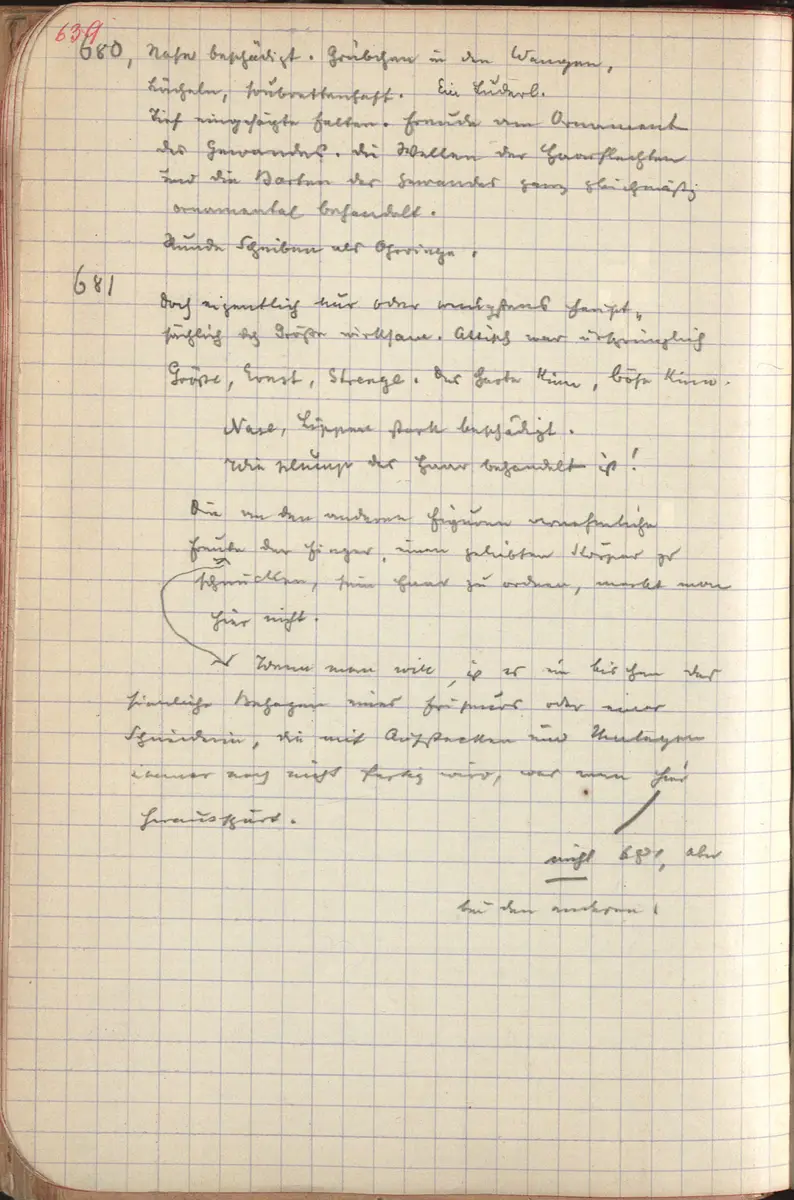 639
680, Nase beschädigt. Grübchen in den Wangen,
Lächeln, soubrettenhaft. Ein Luderl.
Tief eingesägte Falten. Freude am Ornament
des Gewandes. Die Wellen der Haarflechten
und die Borten des Gewandes ganz gleichmäßig
ornamental behandelt.
Runde Scheiben als Ohrringe.
681
Doch eigentlich nur oder wenigstens haupt„
sächlich des Größe wirksam. Attisch war ursprünglich
Größe, Ernst, Strenge. Das harte Kinn, böse Kinn.
Nase, Lippen stark beschädigt.
Wie plump das Haar behandelt ist!
Die an den anderen Figuren vernehmliche
Freude der Finger, einen geliebten Körper zu
schmücken, sein Haar zu ordnen, merkt man
hier nicht.
Wenn man will, ist es ein bischen das
sinnliche Behagen eines Friseurs oder einer
Schneiderin, die mit Aufstecken und Umlegen
immer noch nicht fertig wird, was man hier
herausspürt.
nicht 681, aber
bei den anderen!